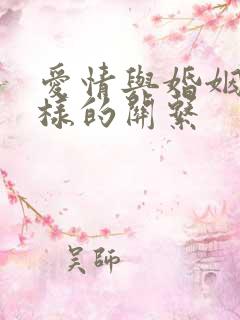 愛情與婚姻
樣的關繫
吳師